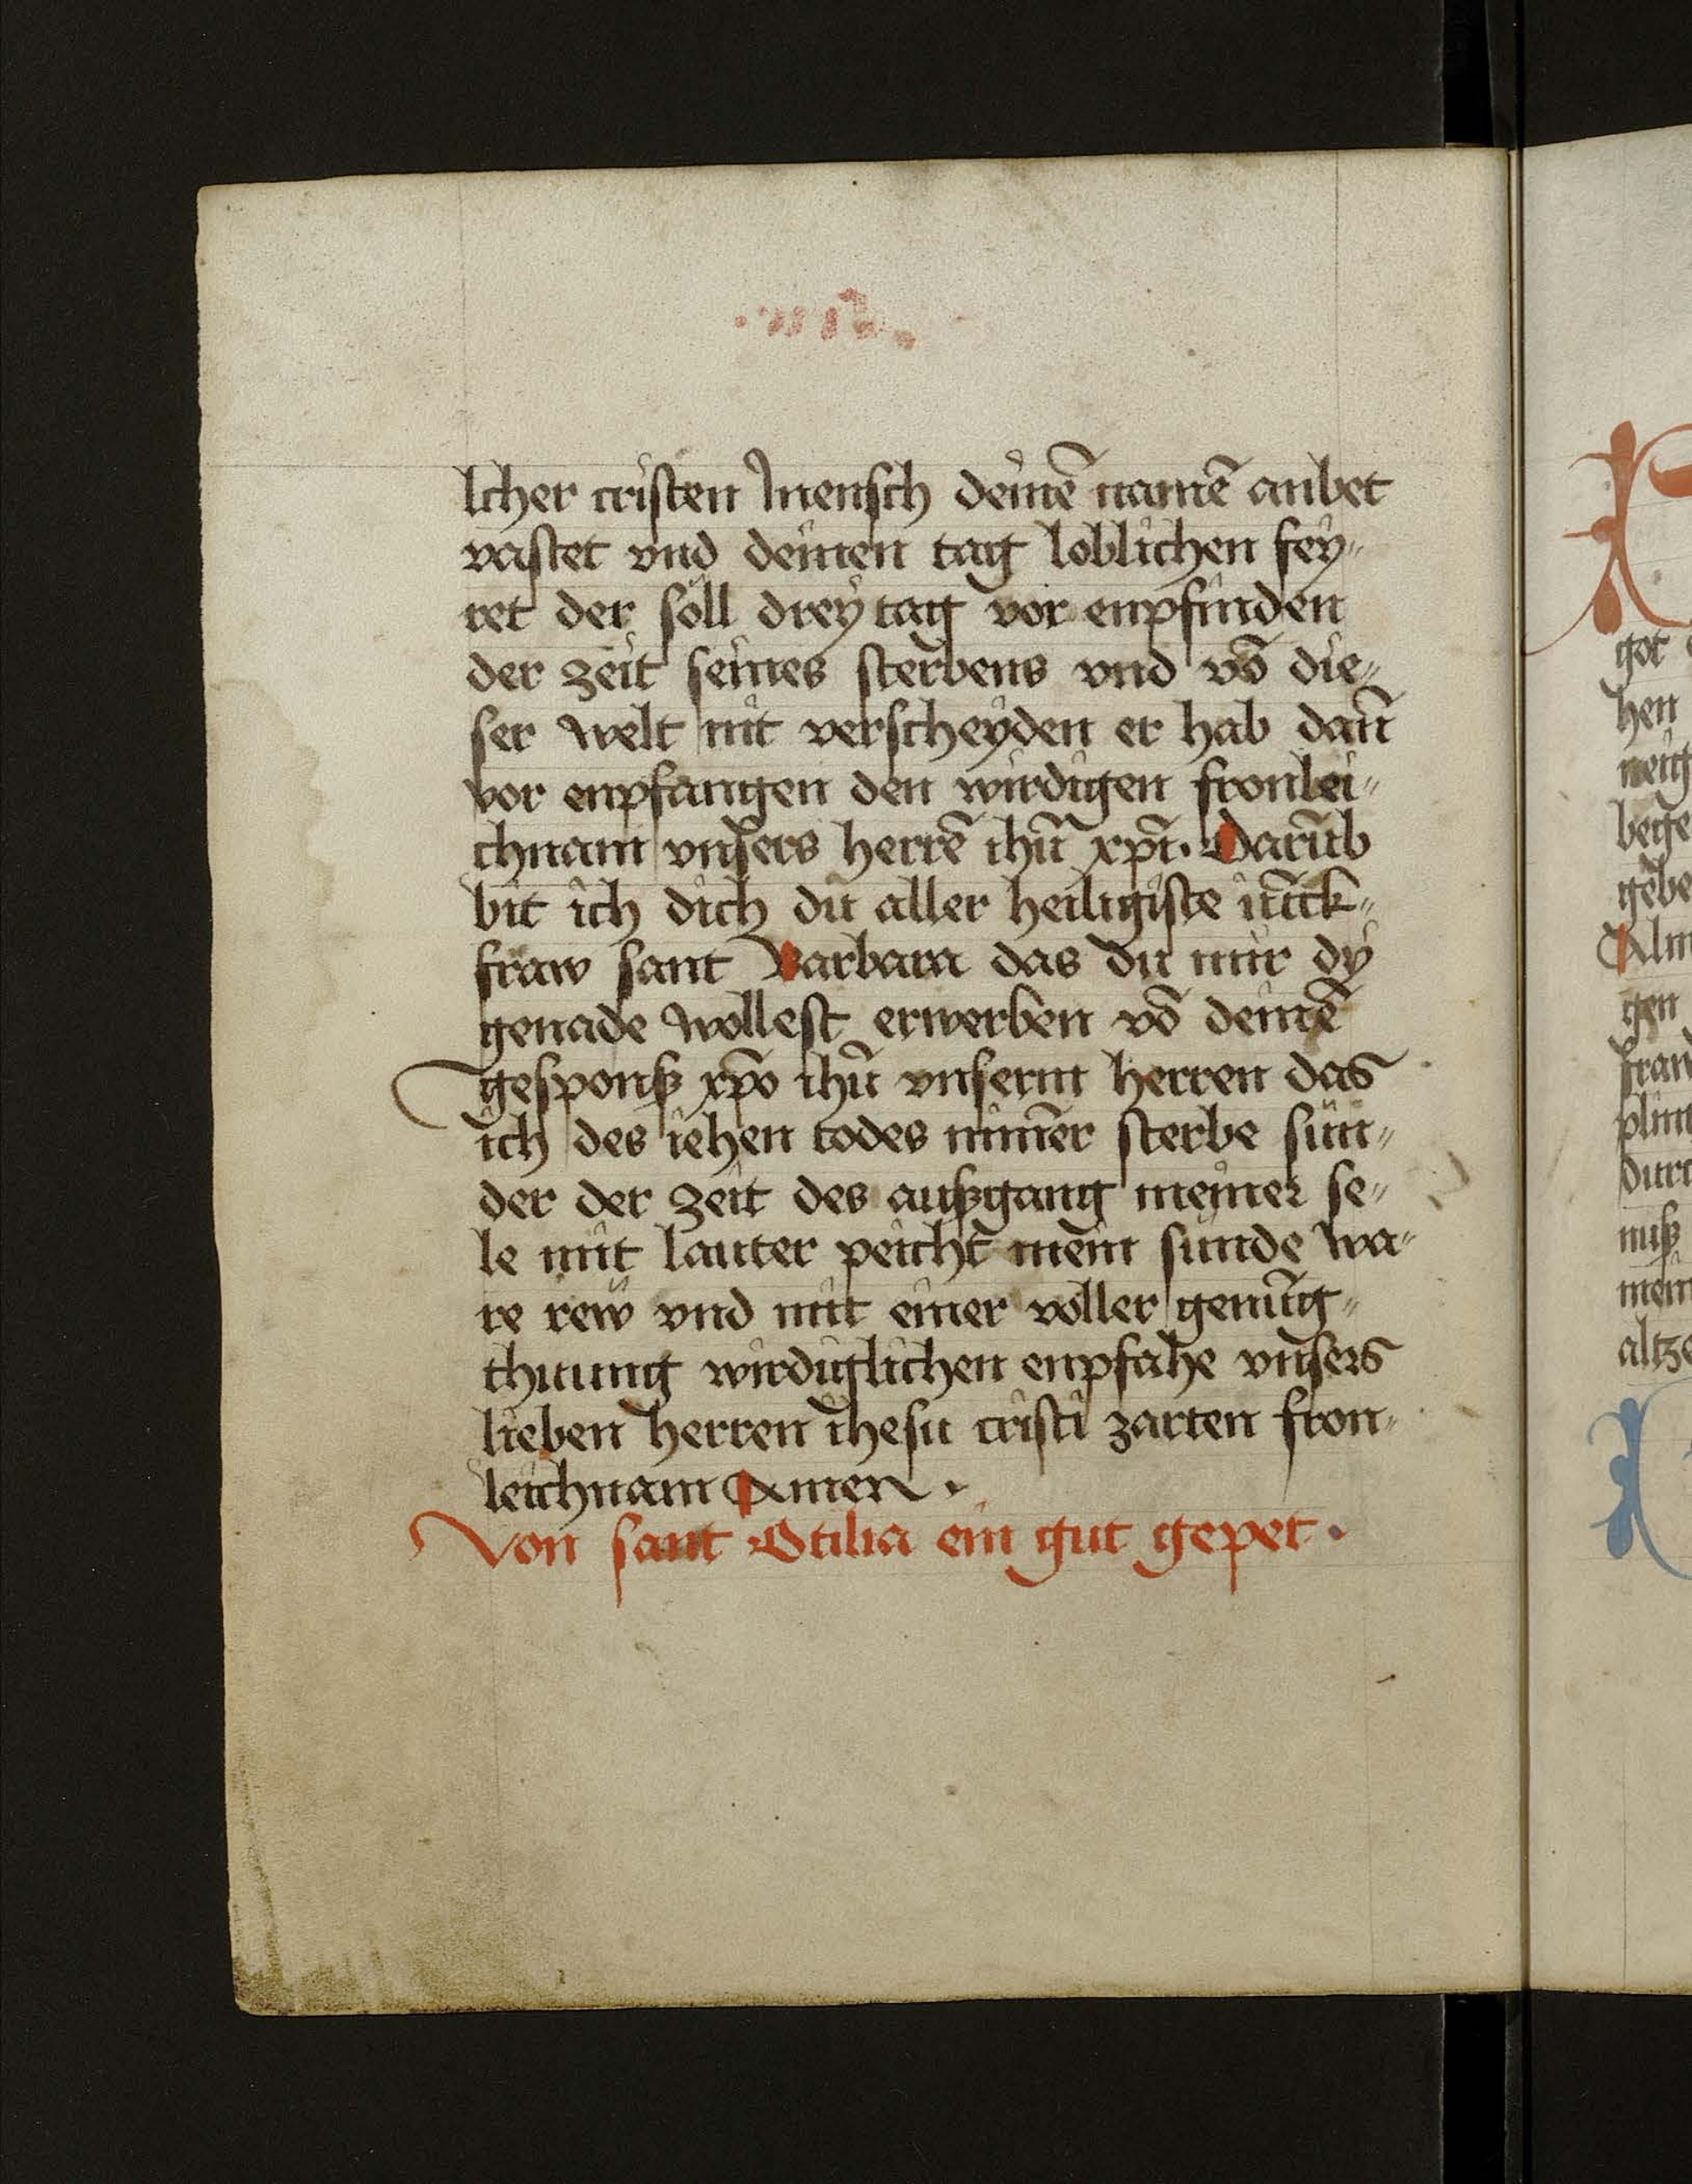 lcher cristen mensch deinē namē anbet
vastet vnd deinen tag loblichen fey⸗
ret der soll drey tag vor enpfinden
der zeit seines sterbens vnd vō die⸗
ser welt nit verscheyden er hab dan̄
vor enpfangen den wirdigen fronlei⸗
chnam vnsers herrē ihū xp̄i. Darūb
bit ich dich du aller heiligiste iūck⸗
fraw sant Barbara das du mir dy
genade wollest erwerben vō deinē
gesponß xp̄o ihū vnserm herren das
ich des iehen todes nim̄er sterbe sün⸗
der der zeit des außgang meiner se⸗
le mit lauter peicht mein sunde wa⸗
re rew vnd mit einer voller genūg⸗
thuung wirdiglichen enpfahe vnsers
lieben herren ihesu cristi zarten fron⸗
leichnam Amen.
Von sant Otilia ein gut gepet.
got
hen
neig
bege
gebe
Alm
gen
durc
nuß
mein